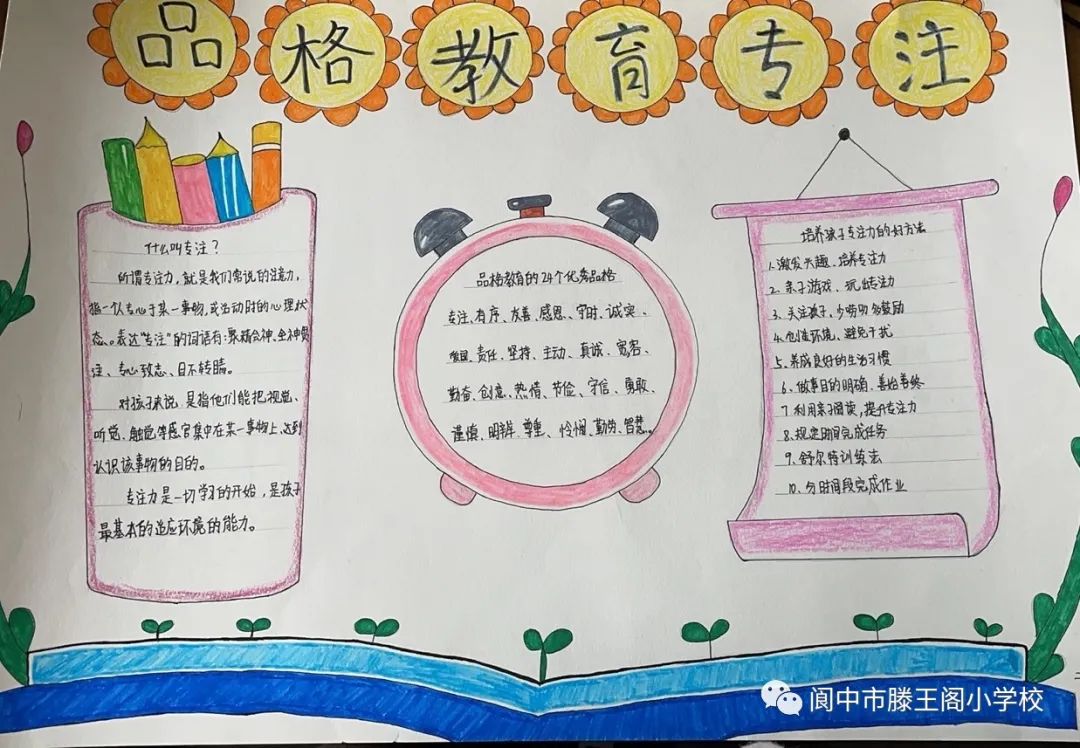 品格教育专注
什么叫专注？
所谓专注力，就是我们常说的注意力，
指一个人专心于某一事物，或活动时的心理状
态。表达“专注”的词语有：聚精会神、全神贯
注、专心致志、目不转睛。
对孩子来说，是指他们能把视觉、
听觉、触觉等感官集中在某一事物上，达到
认识该事物的目的。
专注力是一切学习的开始，是孩子
最基本的适应环境的能力。
品格教育的24个优秀品格
专注、有序、友善、感恩、守时、诚实、
责任、坚持、主动、真诚、宽容、
勤奋、创意、热情、节俭、守信、勇敢、
谨慎、明辨、尊重、怜悯、勤劳、智慧。
培养孩子专注力的好方法
1、激发兴趣、培养专注力
2、亲子游戏、玩出专注力
3、关注孩子，少唠叨多鼓励
4、创造环境，避免干扰
5、养成良好的生活习惯
6、做事目的明确，善始善终
7、利用亲子阅读，提升专注力
8、规定时间完成任务
9、舒尔特训练法
10、分时间段完成作业
阆中市滕王阁小学校